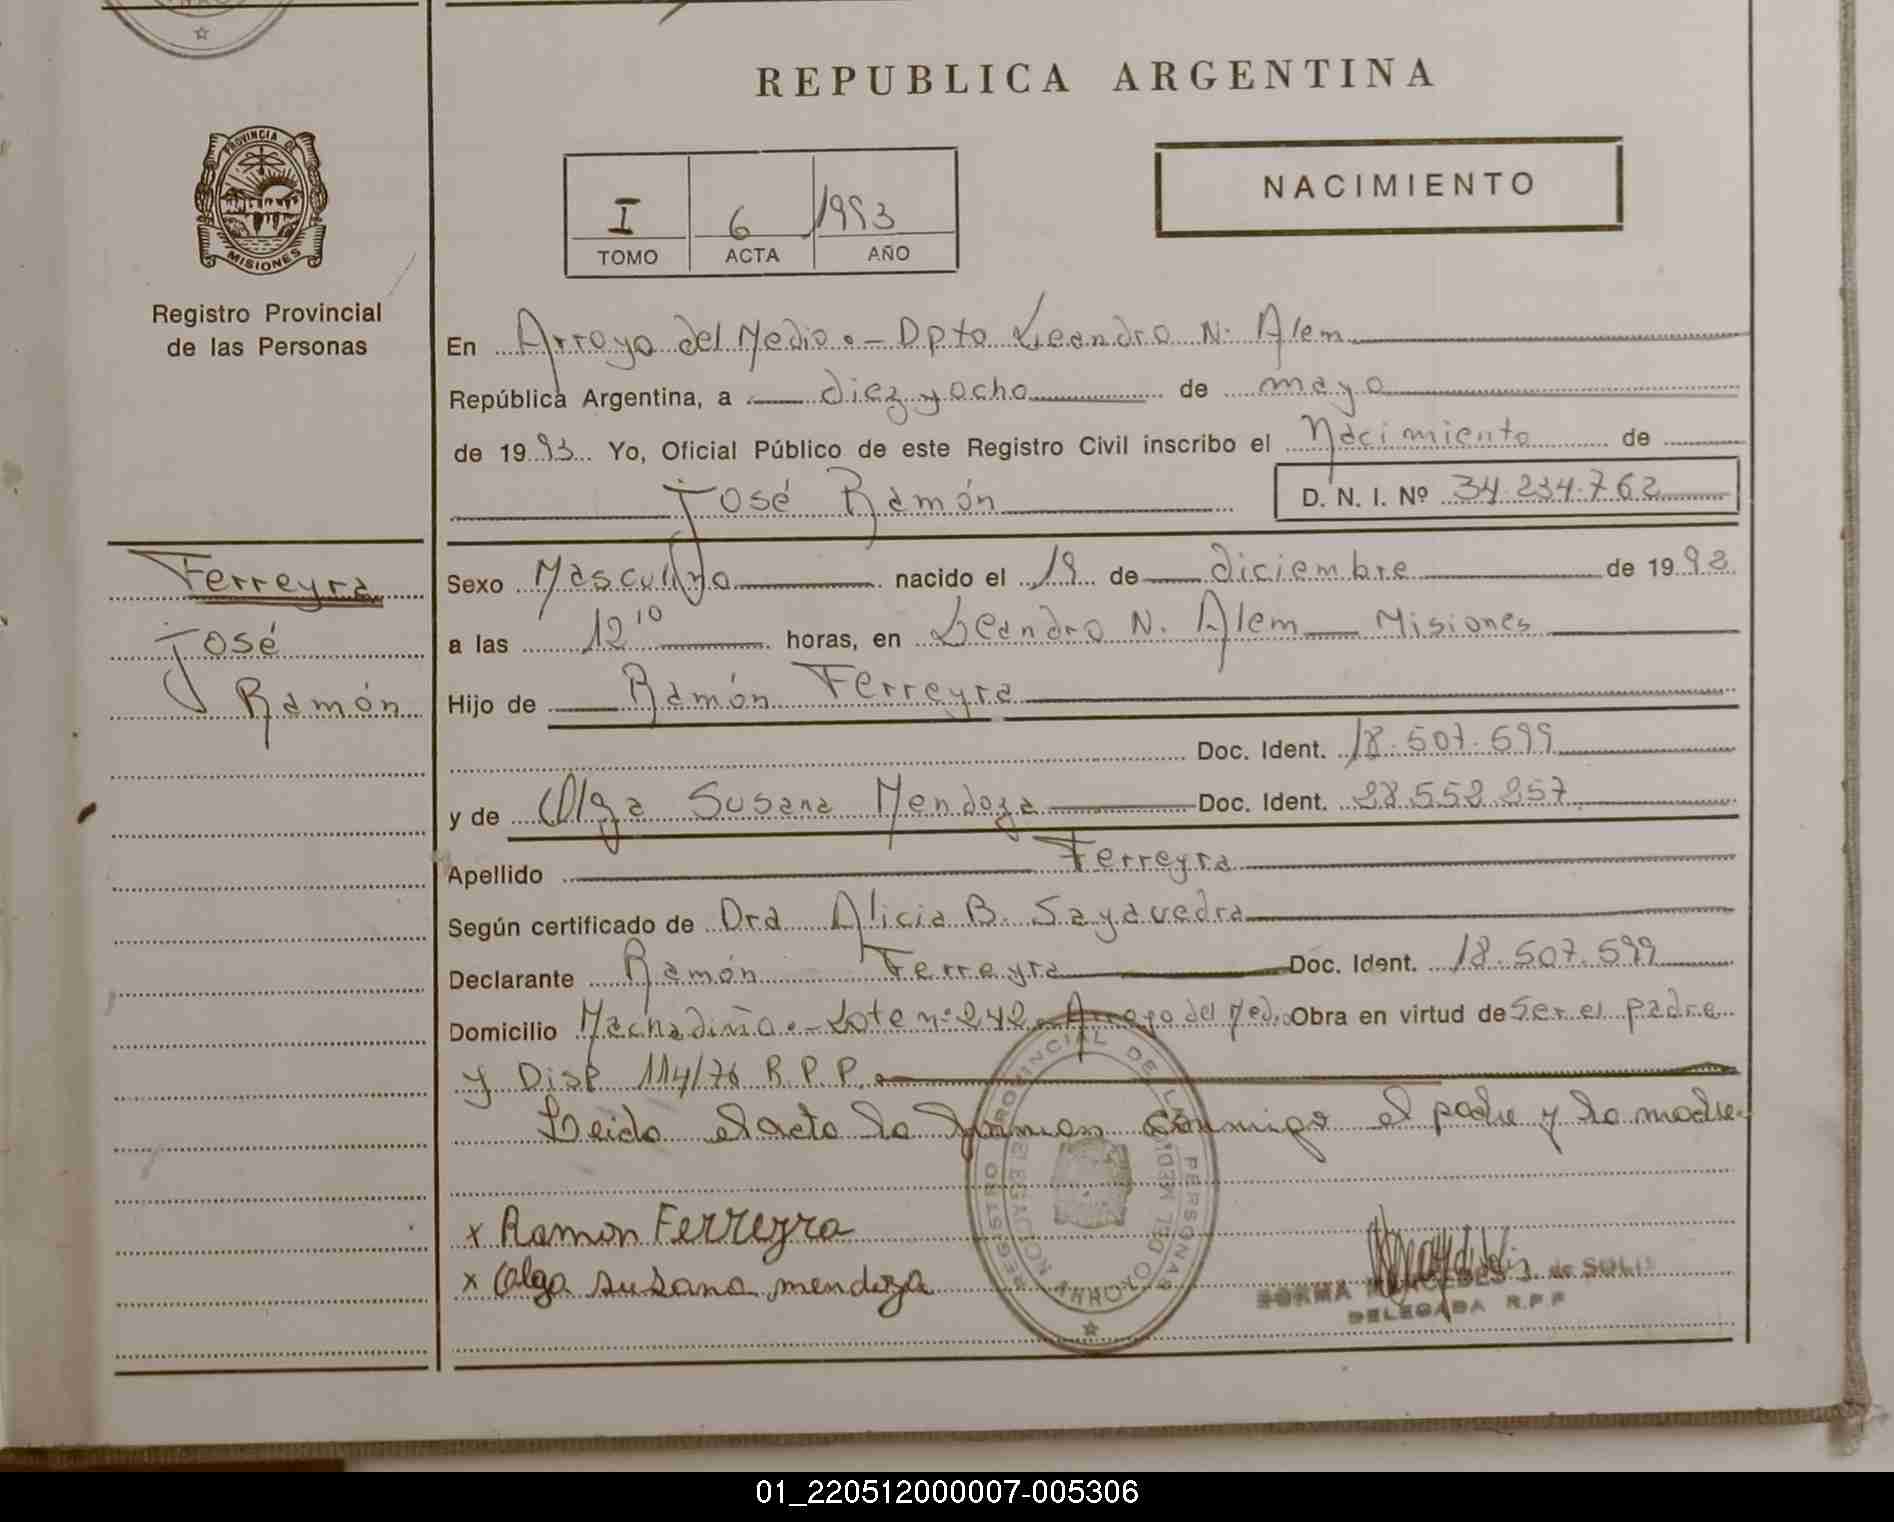 REPUBLICA ARGENTINA
PROVINCIA DE
MISIONES
Registro Provincial
de las Personas
I 6 1993
TOMO ACTA AÑO
NACIMIENTO
En Arroyo del Medio.- Dpto Leandro N. Alem
República Argentina, a diez y ocho de mayo
de 1993 Yo, Oficial Público de este Registro Civil inscribo el Nacimiento de
José Ramón D. N. I. Nº 34.234.762
Ferreyra
José
Ramón
Sexo Masculino nacido el 19 de diciembre de 1992
a las 12 10 horas, en Leandro N. Alem Misiones
Hijo de Ramón Ferreyra
Doc. Ident. 18.507.599
y de Olga Susana Mendoza Doc. Ident. 28.552.257
Apellido Ferreyra
Según certificado de Dra Alicia B. Sayavedra
Declarante Ramón Ferreyra Doc. Ident. 18.507.599
Domicilio Machadiño.- Lote nº 242 Arroyo del Medio Obra en virtud de ser el padre
y Disp 114/76 R.P.P.
Leido el acto lo firman conmigo el padre y la madre.
x Ramon Ferreyra
x Olga susana mendoza
REGISTRO PROVINCIAL DE LAS PERSONAS
DELEGACION ARROYO DEL MEDIO
NORMA MERCEDES J. de SOLIS
DELEGADA R.P.P
01_220512000007-005306